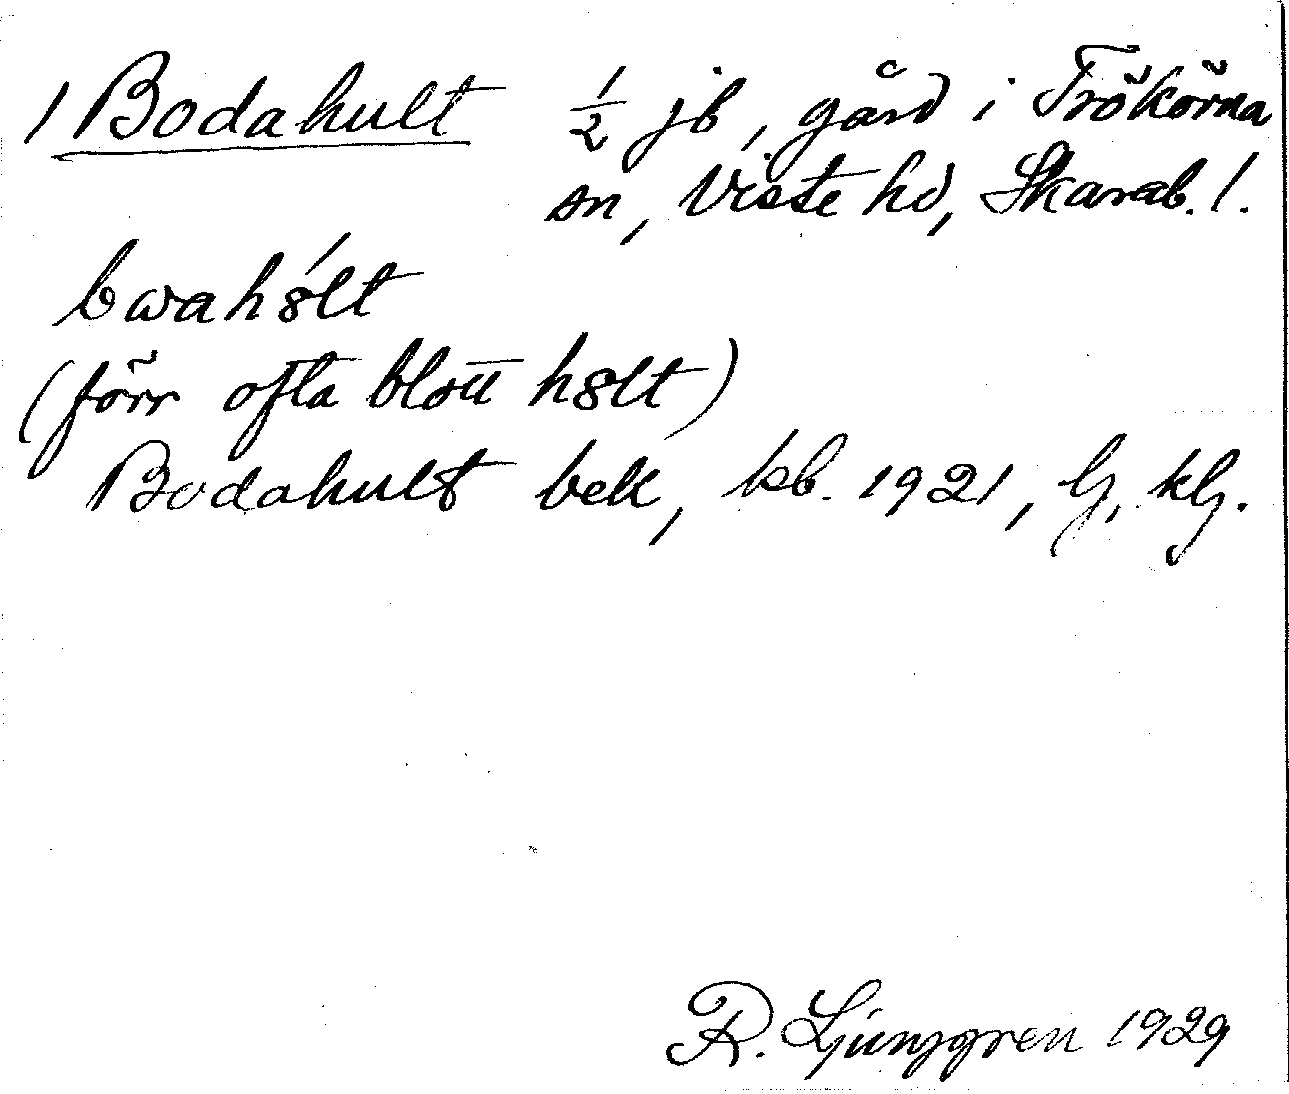 1 Bodahult ½ jb, gård i Trökörna
sn, Viste hd, Skarab. l.
bωrahó̤lt
(förr ofta blott hult)
Bodahult bek, kb. 1921, lj. klj.
R. Ljunggren 1929